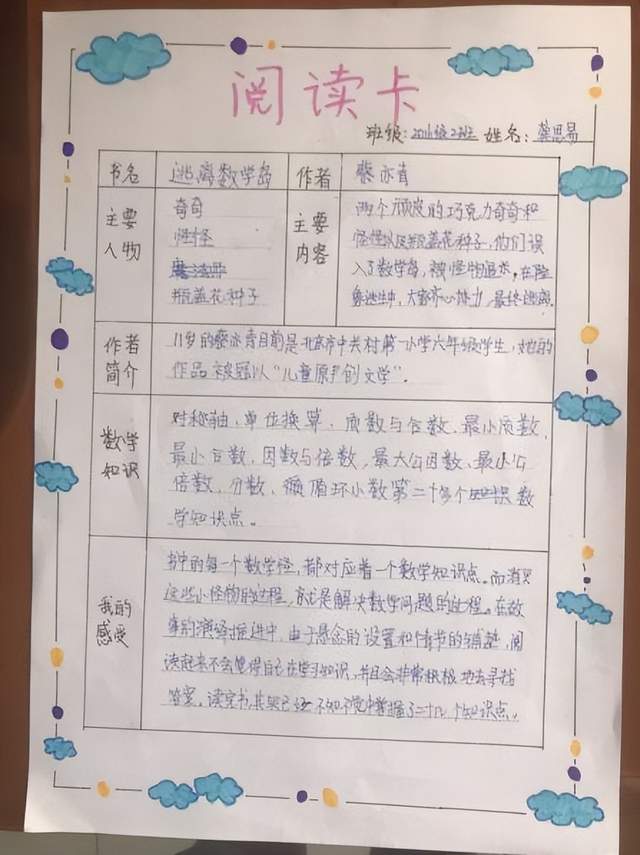 阅读卡
班级:2016级2班 姓名:龚思易
书名 逃离数学岛 作者 蔡亦青
主要人物
奇奇
怪怪
瓶盖花种子
主要内容
两个顽皮的巧克力奇奇和
怪怪以及瓶盖花种子,他们误
入了数学岛,被怪物追杀,在险
象逃生中,大家齐心协力,最终逃离。
作者简介
11岁的蔡亦青目前是北京市中关村第一小学六年级学生,她的
作品被冠以“儿童原创文学”.
数学知识
对称轴,单位换算,质数与合数、最小质数,
最小合数,因数与倍数,最大公因数、最小公
倍数,分数、循环小数等二十多个数
学知识点。
我的感受
书中的每一个数学怪,都对应着一个数学知识点。而消灭
这些小怪物的过程,就是解决数学问题的过程。在故
事的演绎推进中,由于悬念的设置和情节的铺垫,阅
读起来不会觉得自己在学习知识,并且会非常积极地去寻找
答案。读完书,其实已经不知不觉中掌握了二十几个知识点。